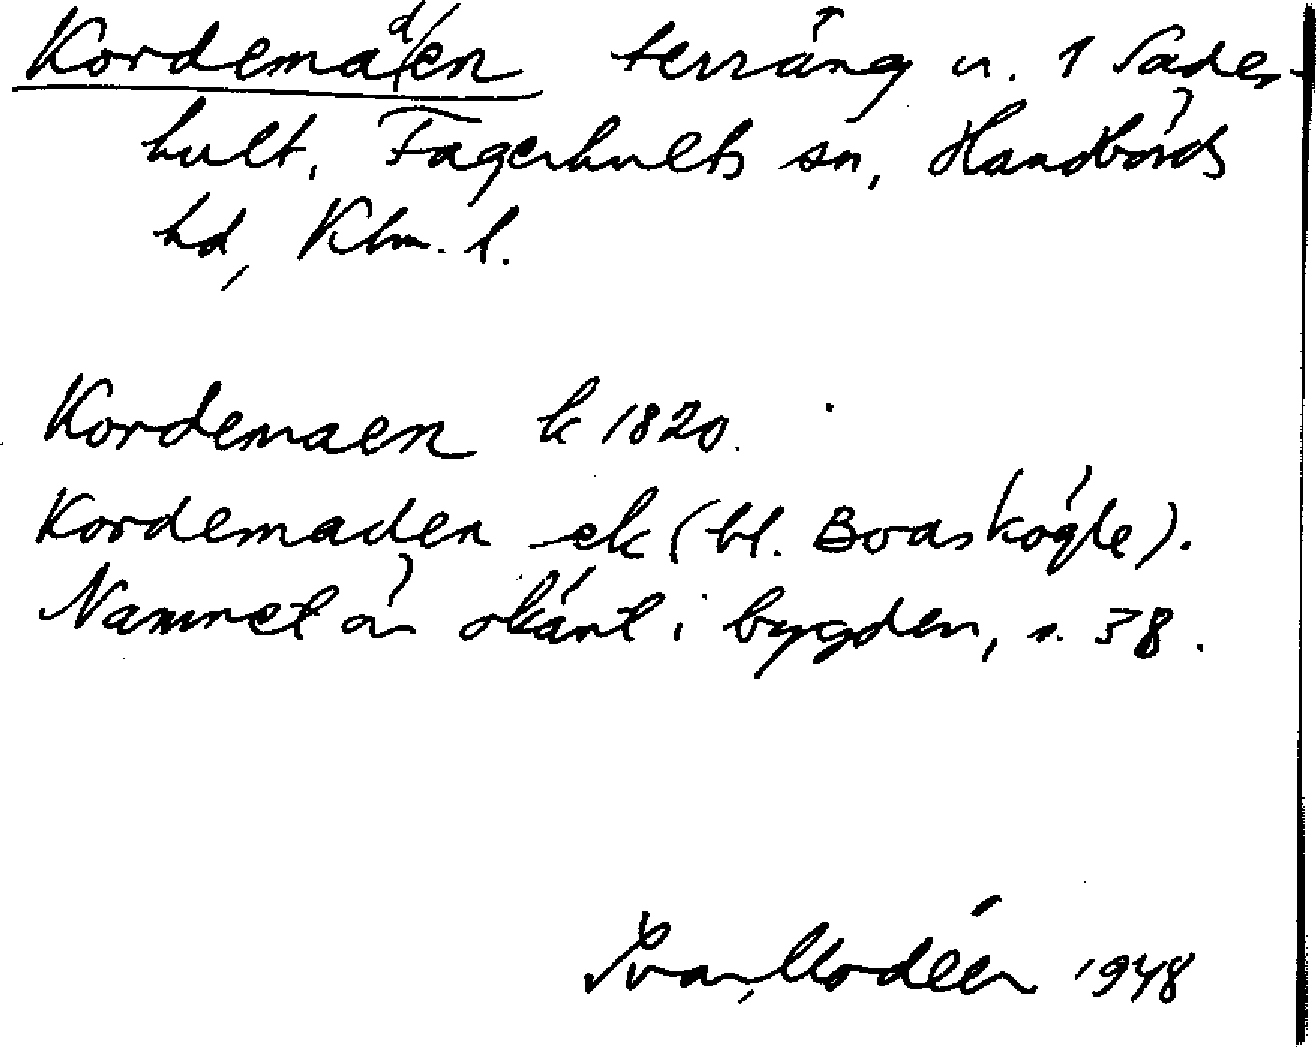 Kordema(d)en terräng u. 1 Sades-
hult, Fagerhults sn, Handbörds
hd, Klm. l.
Kordemaen k 1820.
Kordemaden ek (bl. Boaskögle).
Namnet är okänt i bygden, s. 38.
Ivar Modéer 1948